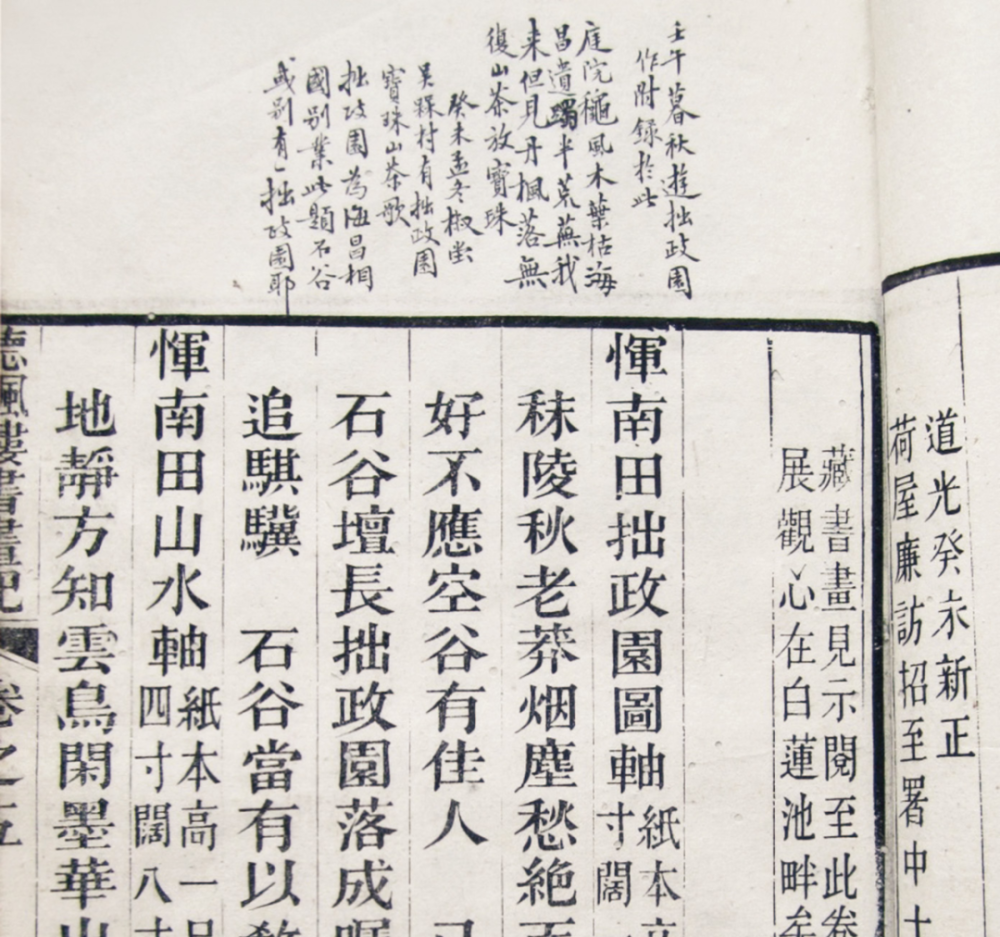 道光癸未新正
荷屋廉訪招至署中
壬午暮秋遊拙政園
作附錄於此
庭院龝風木葉枯海
昌遺躅半荒蕪我
来但見丹楓落無
復山茶放寶珠
癸未孟冬椒堂
吴縣村有拙政園
寶珠山茶歌
拙政園為海昌相
國别業此題石谷
或别有一拙政園耶
藏書畫見示閱至此卷
展觀心在白蓮池畔矣
惲南田拙政園圖軸紙本
寸闊
秣陵秋老莽烟塵愁絶
好不應空谷有佳人
石谷壇長拙政園落成
追騏驥 石谷當有以
惲南田山水軸紙本高一
四寸闊八寸
地靜方知雲鳥閑墨華
聽颿樓書畫記 卷之五